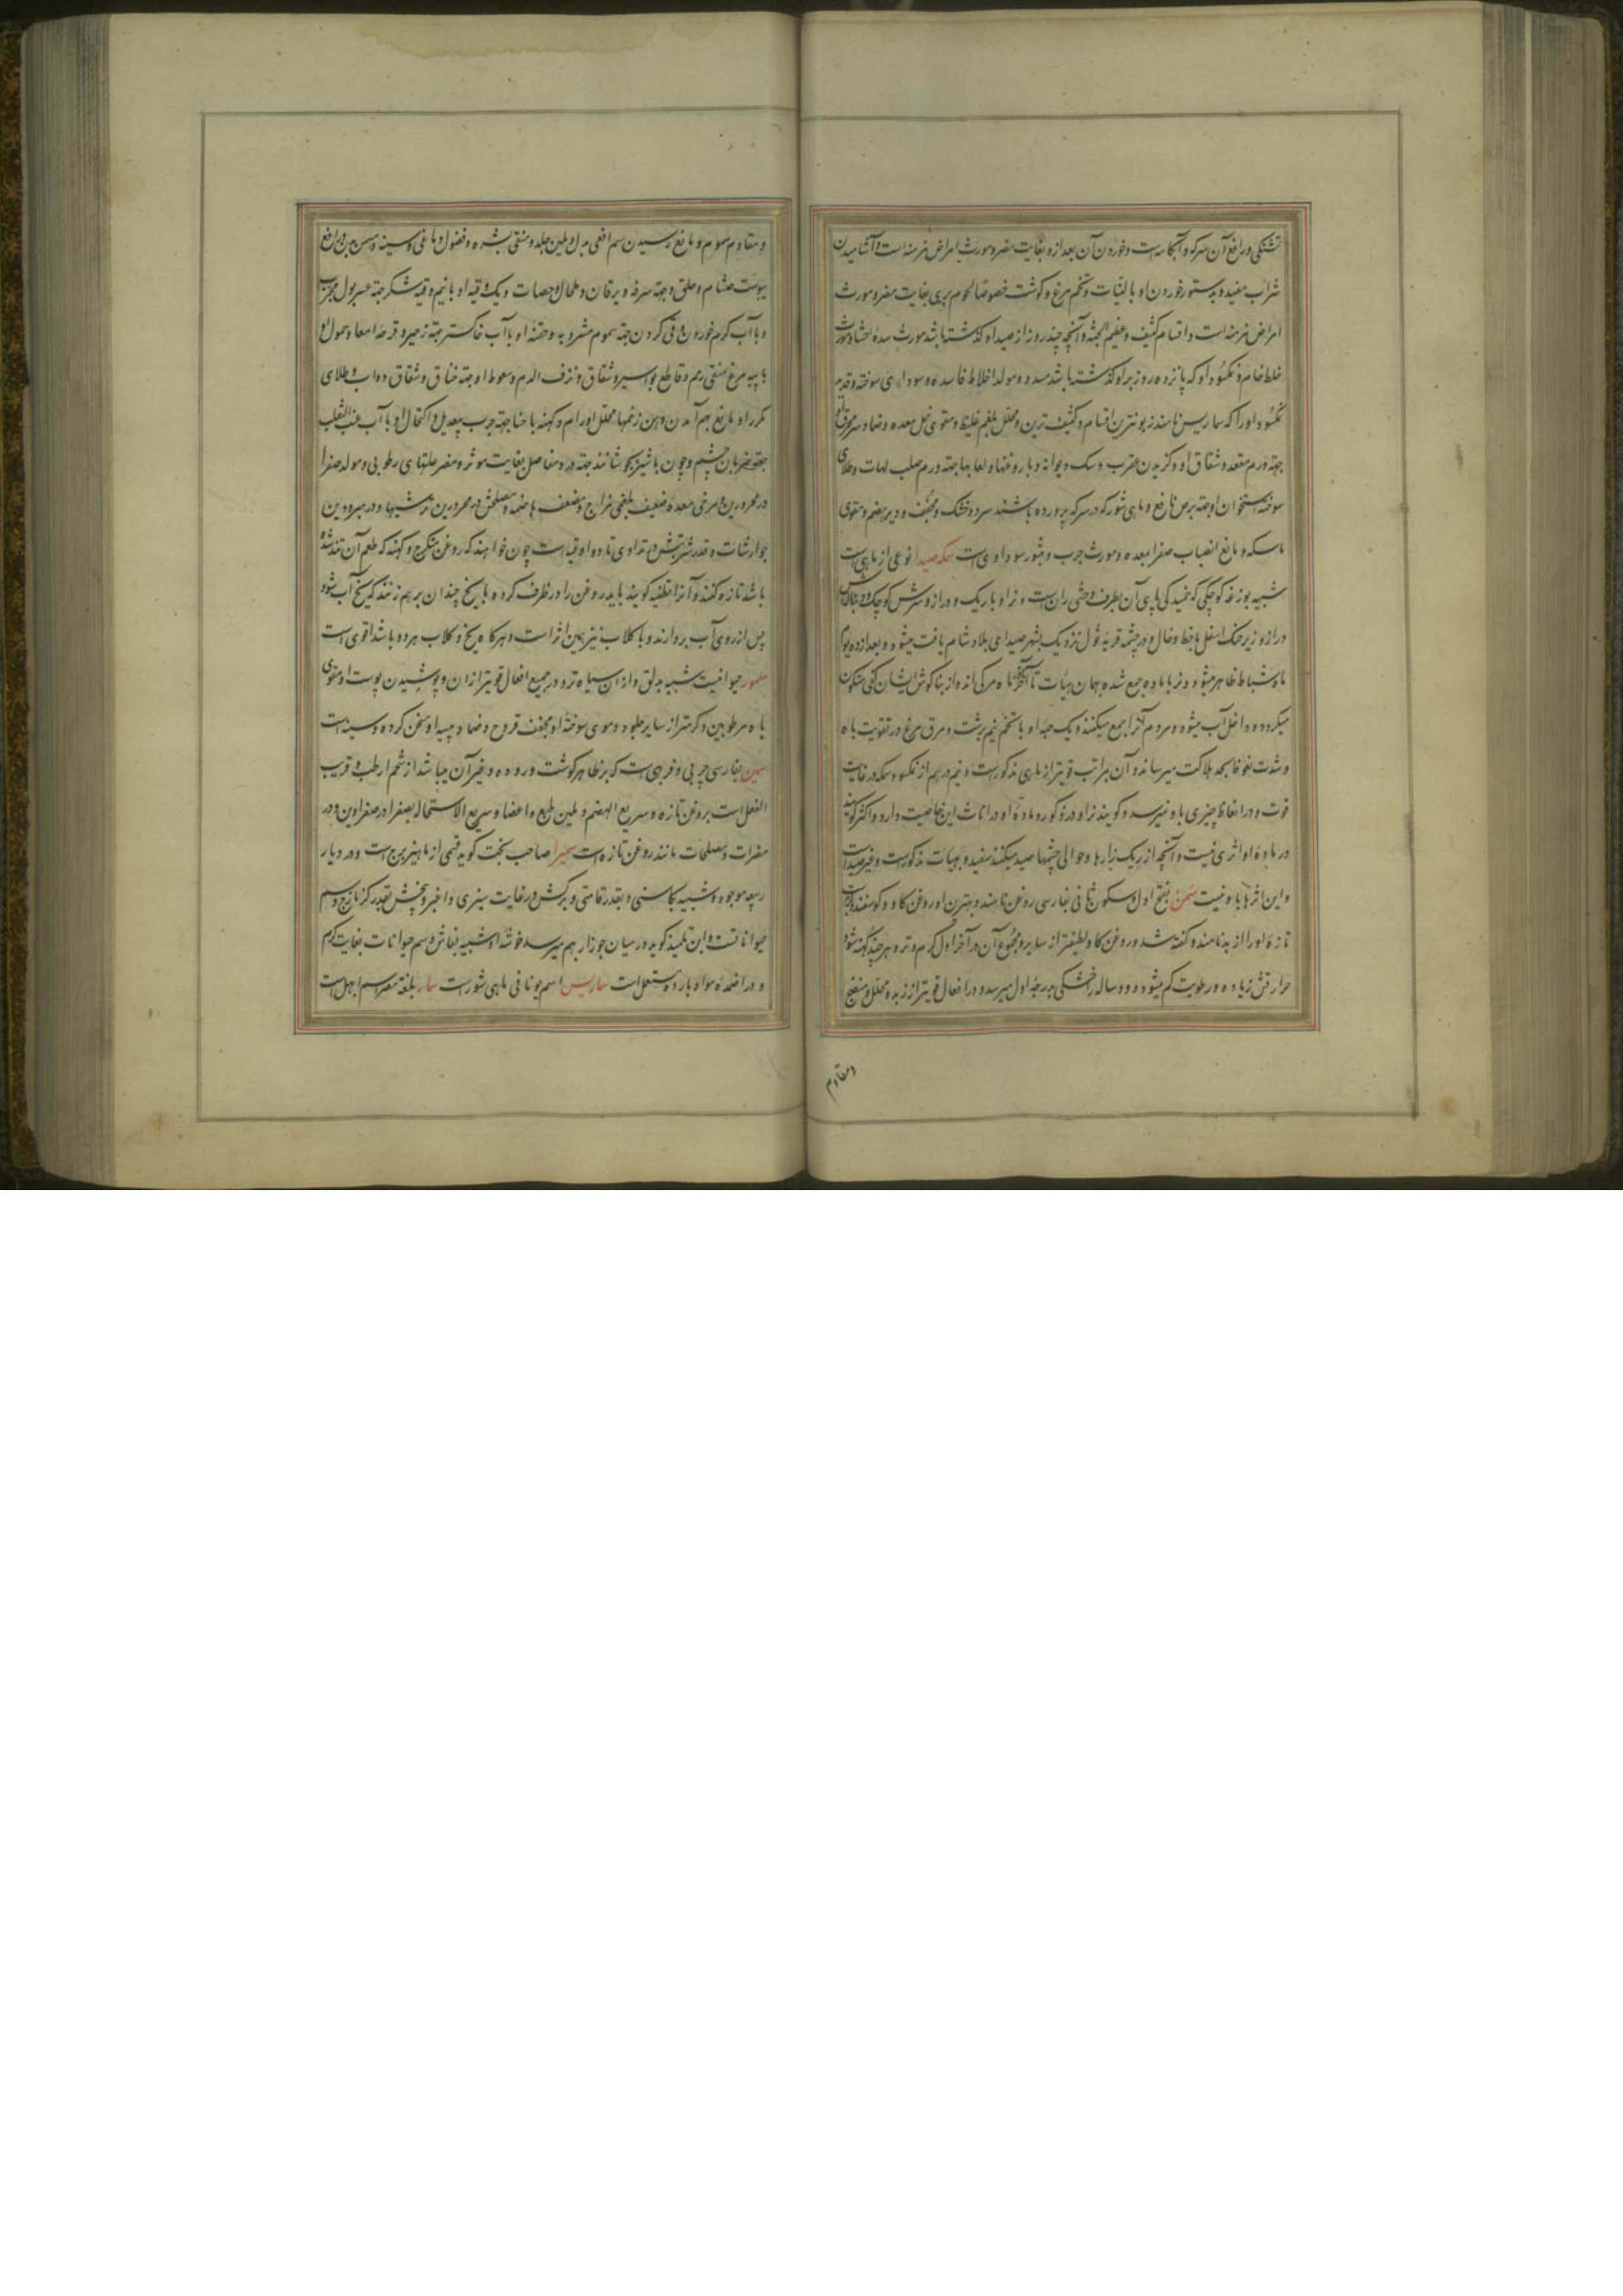 تشنکی و رافع آن سرکه و آبکامه است و خوردن آن بعد ازو بغایت مضر و مورث امراض مزمنه است و آشامیدن
شراب مفید و بدستور خوردن او با لبنیات و تخم مرغ و کوشت خصوصا لحوم بری بغایت مضر و مورث
امراض مزمنه است و اقسام کثیف و عظیم الجثه و آنچه چند روز از صید او کذشته باشد مورث سده احشا و مورث
خلط خام و نمکسود او که پانزده روز بر او کذشته باشد مسدد و مولد اخلاط فاسده و سوداوی سوخته و قدیم
نمکسود او را که سماریس نامند زبونترین اقسام و کثیف ترین و محلل بلغم غلیظ و مقوی فعل معده و ضماد سر محرق او
جهة ورم مقعد و شقاق او و کزیدن عقرب و سک دیوانه و با روغنها و لعابها جهة ورم صلب لهات و طلای
سوخته استخوان او جهة برص نافع و ماهی شور که در سرکه پرورده باشند سرد و خشک و مجفف و دیر هضم و مقوی
ماسکه و مانع انصباب صفرا بمعده و مورث جرب و بثور سوداوی است سمکه صیدا نوعی از ماهی است
شبیه بوزغه کوچکی که خمیدکی پای آن بطرف وحشی ران است و نر او باریک و دراز و سرش کوچک و
دراز و زیر حنک اسفل با نقط و خال و در چشمه قریه نزدیک بشهر صیدای بلاد شام یافت میشود و بعد از ده یوم
ماه شباط ظاهر میشود و نر با ماده جمع شده بهمان هیأت تا آخر ماه مرکی اند و از بناکوش ایشان کفی متکون
میکردد و داخل آب میشود و مردم آنرا جمع میکنند و یک حبه او با تخم نیم برشت و مرق مرغ در تقویت باه
و شدت نعوظ بحد هلاکت میرساند و آن بمراتب قویتر از ماهی مذکور است و نیم درهم از نمکسود سمکه در غایت
قوت و در انعاظ چیزی باو نمیرسد و کویند نر او در ذکور و ماده او در اناث این خاصیت دارد و اکثر کویند
در ماده او اثری نیست و آنچه از ریک زارها و حوالی چشمها صید میکنند سفید و بهیأت مذکور است و غیر صیدا است
و این اثرها با او نیست سمن بفتح اول و سکون ثانی بفارسی روغن نامند و بهترین او روغن کاو و کوسفند و
تازه او را از بد نامند و کفته شد و روغن کاو لطیفتر از سایر و مجموع آن در آخر اول کرم و تر و هر چند کهنه شود
حرارتش زیاده و رطوبت کم میشود و دو ساله در خشکی بدرجه اول میرسد و در افعال قویتر از زبد و محلل و منضج
و مقاوم
و مقاوم سموم و مانع رسیدن سم افعی بدل و ملین جلد و منقی بشره و فضول دماغی و سینه و مسمن بدن و رافع
یبوست خشام و حلق و جهة سرفه و یرقان و طحال و حصات و یک وقیه او با نیم وقیه شکر جهة عسر بول مجرب
و با آب کرم خوردن و قی کردن جهة سموم مشروبه و حقنه او با آب خاکستر جهة زحیر و قرحه امعا و حمول او
با پیه مرغ منقی رحم و قاطع بواسیر و شقاق و نزف الدم و سعوط او جهة خناق و شقاق دواب و طلای
مکرر او مانع بهم آمدن دهن زخمها و محلل اورام و کهنه با حنا جهة جرب بیعدیل و اکتحال او با آب عنب الثعلب
جهة ضربان چشم و چون با شیر بجوشانند جهة درد مفاصل بغایت موثر و مضر علتهای رطوبی و مولد صفرا
در محرورین و مرخی معده ضعیف بلغمی مزاج و مضعف هاضمه و مصلحش در محرورین ترشیها و در مبرودین
جوارشات و قدر شربتش در تداوی تا دو اوقیه است چون خواهند که روغن متکرج و کهنه که طعم آن تند شده
باشد تازه کنند و آنرا تطفیه کویند باید روغن را در ظرف کرده با یخ چندان برهم زنند که یخ آب شود
پس از روی آب بردارند و با کلاب نیز همین اثر است و هرکاه یخ و کلاب هر دو باشد اقوی است
سمور حیوانیست شبیه بدلق و از ان سیاه تر و در جمیع افعال قویتر از ان و پوشیدن پوست او مقوی
باه مرطوبین و کرمتر از سایر جلود و موی سوخته او مجفف قروح و ضماد پیه او مسخن کرده و سینه است
سمین بفارسی چربی و فربهی است که بر ظاهر کوشت و روده و غیر آن میباشد از شحم ارطب و قریب
الفعل است بروغن تازه و سریع الهضم و ملین طبع و اعضا و سریع الاستحاله بصفرا در صفراوین و در
مضرات و مصلحات مانند روغن تازه است سمیرا صاحب نخبت کوید قسمی از ماهیزهرج است و در دیار
ربیعه موجود و شبیه بکاسنی و بقدر قامتی و برکش در غایت سبزی و اغبر و بیخش بقدر کزمازج و سم
حیوانات است و ابن تلمیذ کوید در میان جوزار بهم میرسد خوشه او شبیه بماش و سم حیوانات بغایت کرم
و در اضمده مواد بارده مستعمل است سماریس اسم یونانی ماهی شور است سمار بلغة مصر اسم ابهل است